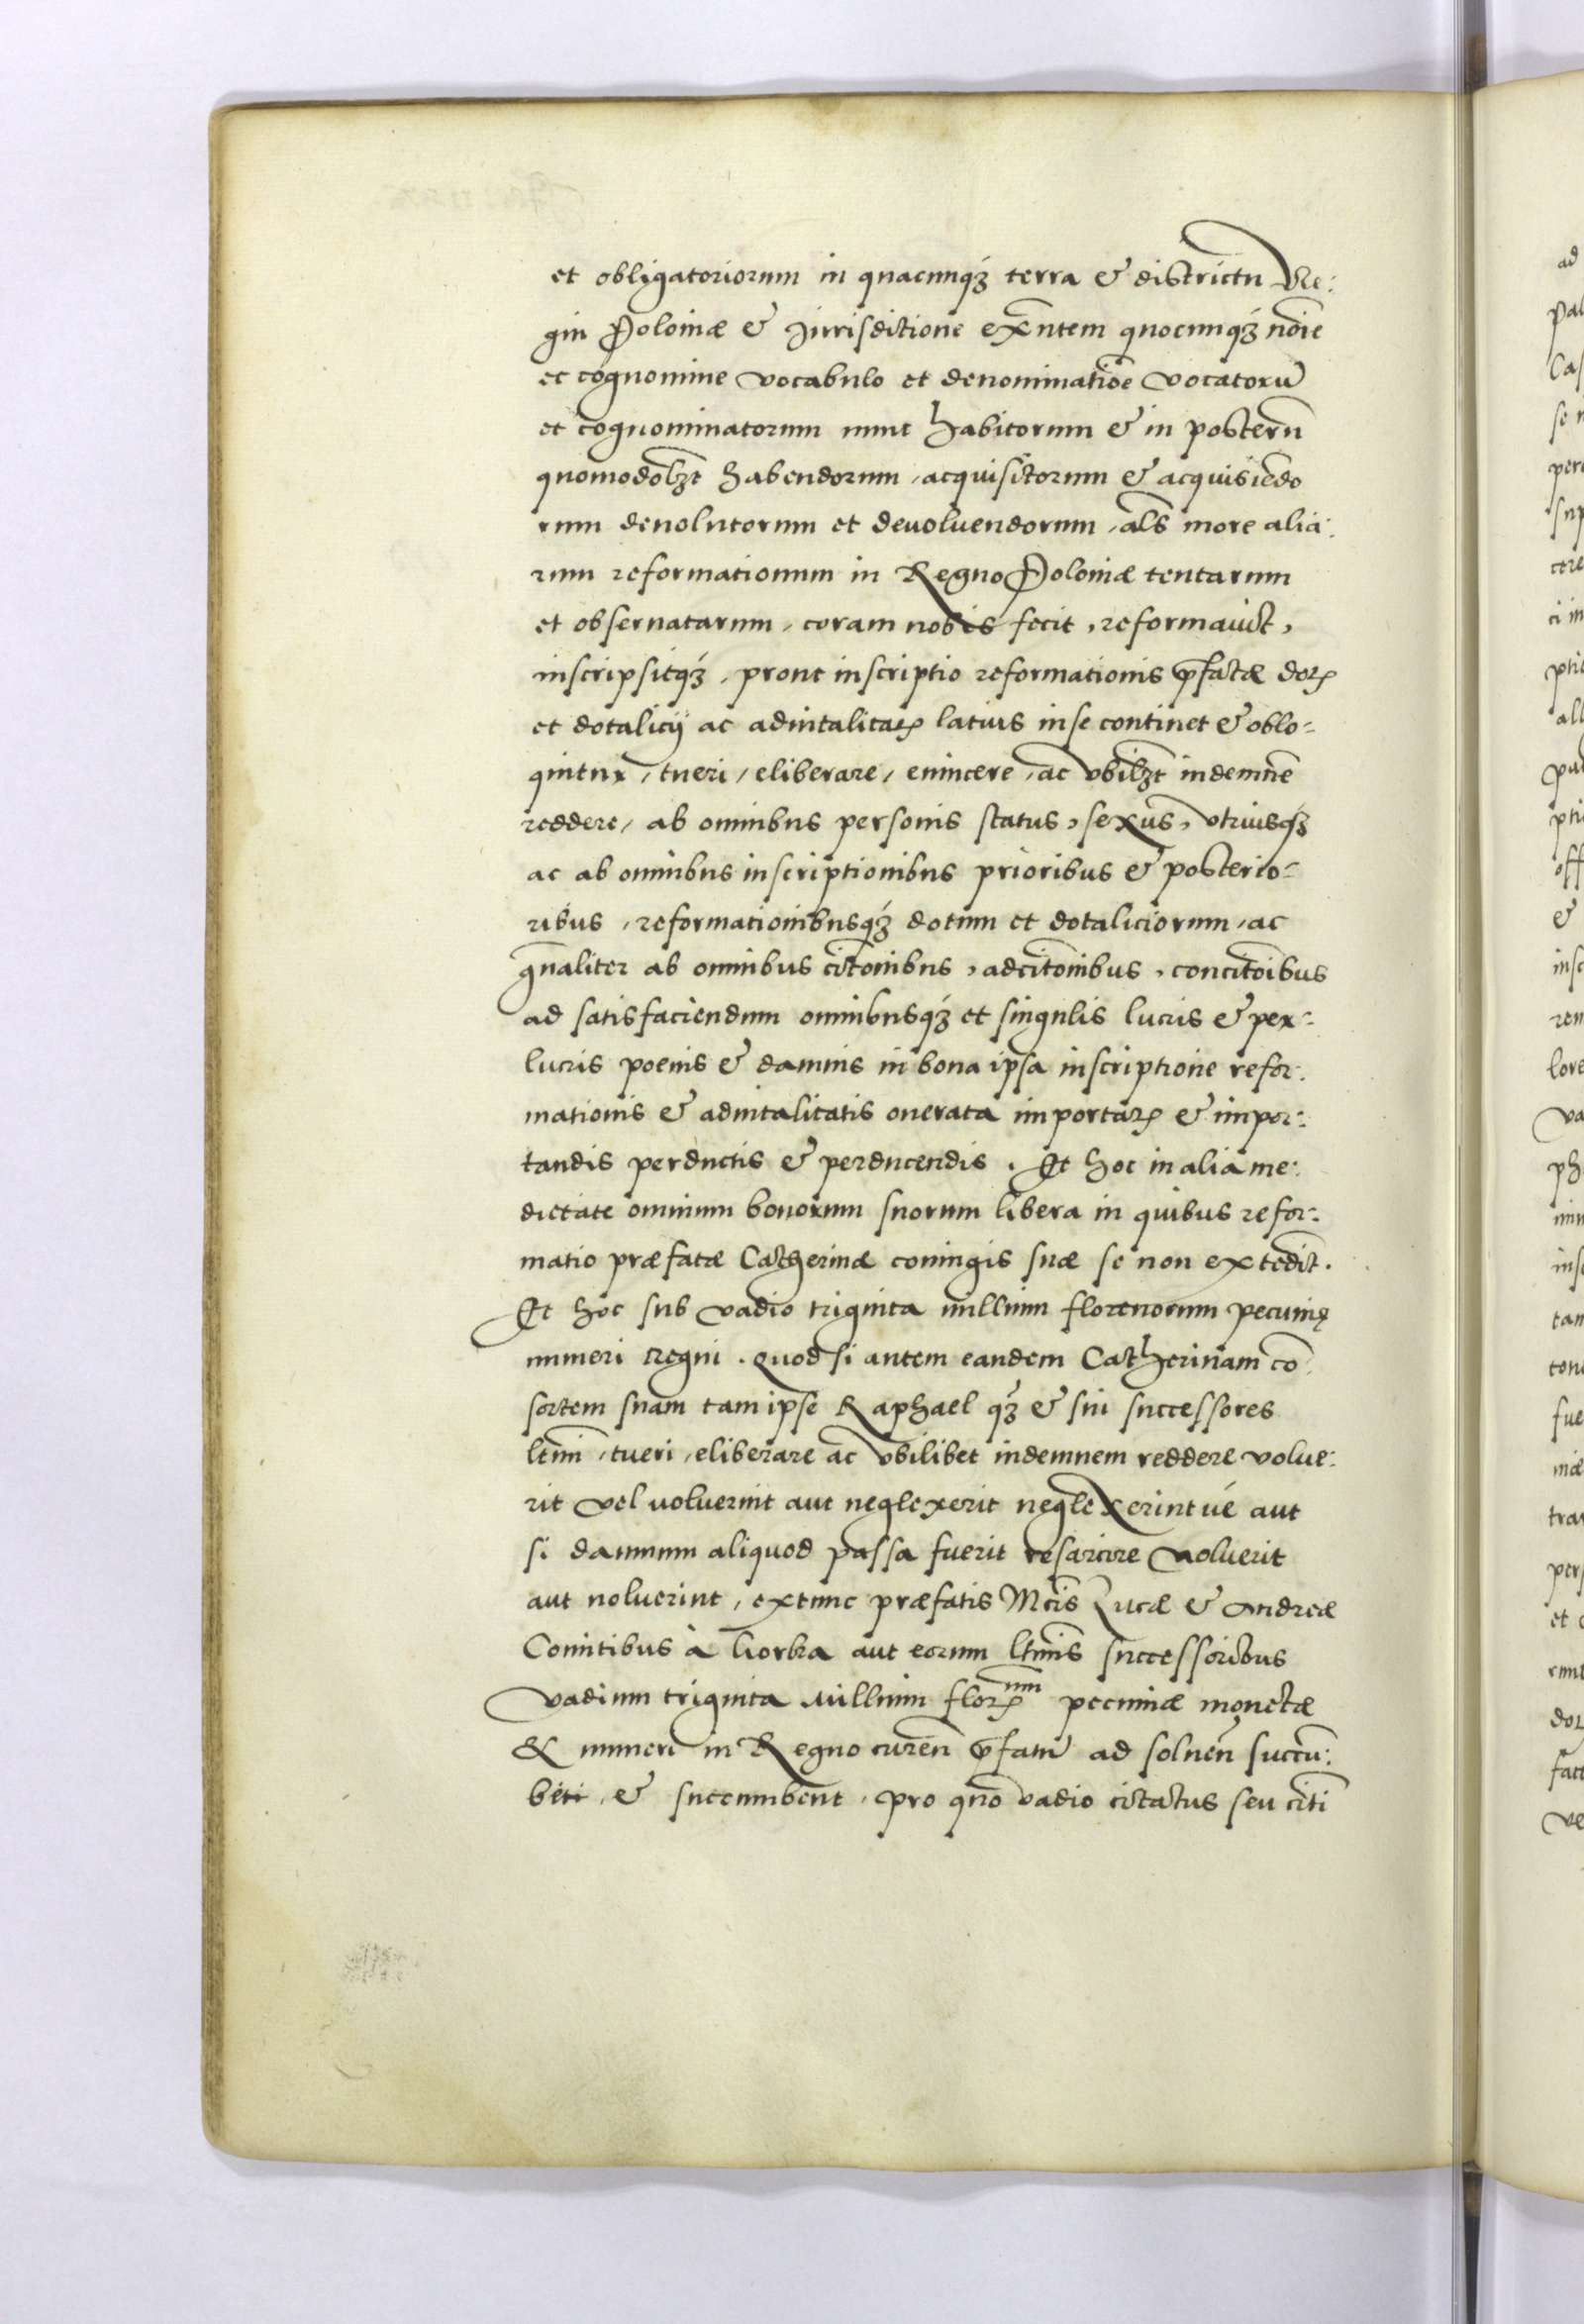 et obligatoriorum in quacunqȝ terra & districtu Re:
gni Poloniæ & Jurisditione exñtem quocunqȝ nõie
et cognomine vocabulo et denominatiõe vocatorũ
et cognominatorum nunc habitorum & in posterũ
quomodolȝt habendorum, acquisitorum & acquisiẽdo
rum deuolutorum et deuoluendorum, als̃ more alia:
rum reformationum in Regno Poloniæ tentarum
et obseruatarum, coram nobis fecit, reformauit,
inscripsitqȝ, prout inscriptio reformationis p̃fatæ doꝝ
et dotalicij ac aduitalitaꝝ latius in se continet & oblo=
quitur, tueri, eliberare, euincere, ac vbilȝt indemñe
reddere, ab omnibus personis status, sexus, vtriusqȝ
ac ab omnibus inscriptionibus prioribus & posterio=
ribus, reformationibusqȝ dotum et dotaliciorum, ac
gñaliter ab omnibus citõnibus, adcitõnibus, concitõibus
ad satisfaciendum omnibusqȝ et singulis lucris & per=
lucris poenis & damnis in bona ipsa inscriptione refor:
mationis & aduitalitatis onerata importaꝝ & impor:
tandis perductis & perducendis. Et hoc in alia me:
dietate omnium bonorum suorum libera in quibus refor:
matio præfatæ Catherinæ coniugis suæ se non extẽdit.
Et hoc sub vadio triginta millium florenorum pecunię
numeri regni. Quod si autem eandem Catherinam cõ
sortem suam tam ipse Raphael qȝ & sui successores
ltĩmi, tueri, eliberare ac vbilibet indemnem reddere nolue:
rit vel noluerint aut neglexerit neglexerintué aut
si damnum aliquod passa fuerit resarcire noluerit
aut noluerint, extunc præfatis Mcis̃ Lucæ & Andreæ
Comitibus à Gorka aut eorum ltĩmis successoribus
vadium triginta millium floꝝum pecuniæ monetæ
& numeri in Regno cureñ p̃fatũ ad solueñ succu:
beti, & succumbent, pro quo vadio citatus seu citi